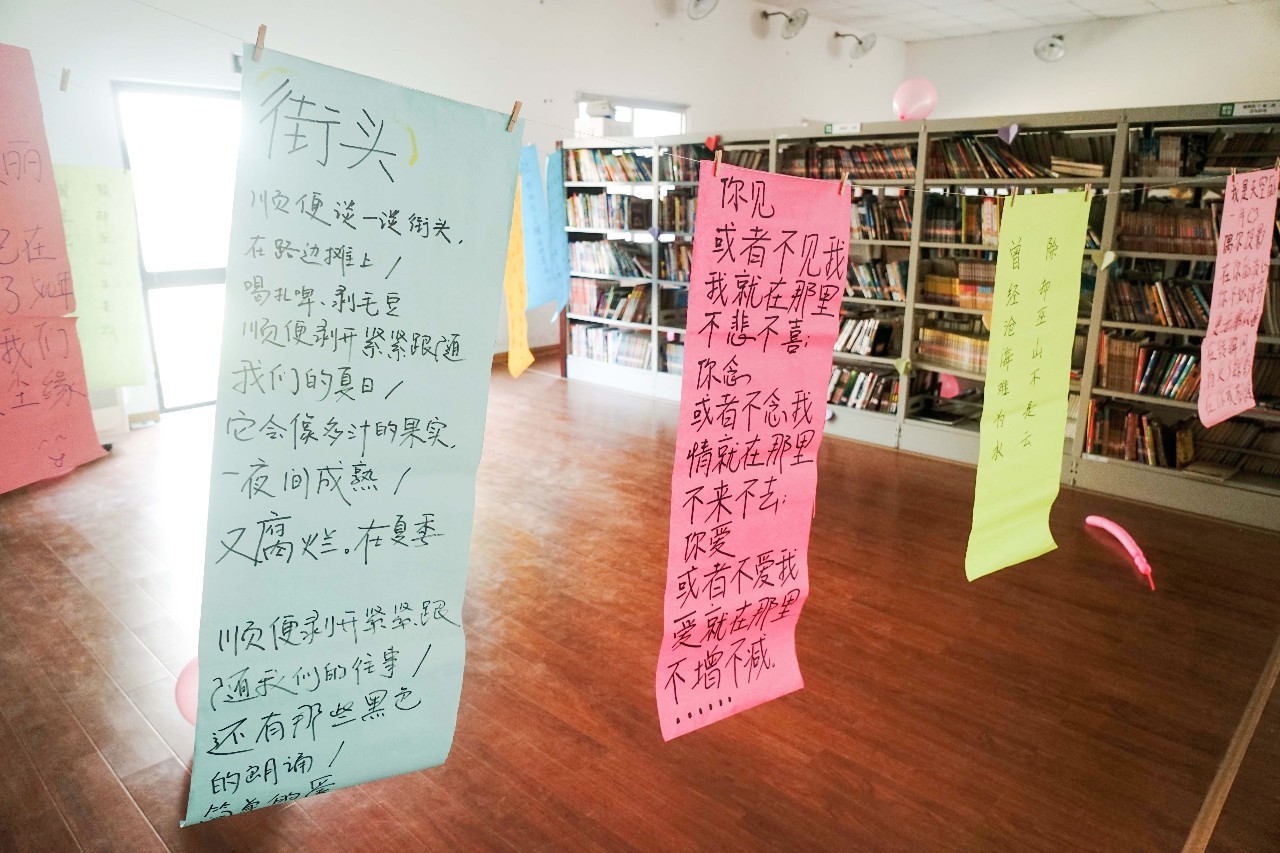 丽
已在
我们
尘缘
街头
顺便谈一谈街头,
在路边摊上/
喝扎啤、剥毛豆
顺便剥开紧紧跟随
我们的夏日/
它会像多汁的果实,
一夜间成熟/
又腐烂。在夏季
顺便剥开紧紧跟
随我们的往事/
还有那些黑色
的朗诵/
简单的爱
你见
或者不见我
我就在那里
不悲不喜;
你念
或者不念我
情就在那里
不来不去;
你爱
或者不爱我
爱就在那里
不增不减.
......
曾经沧海难为水
除却巫山不是云
我是天空